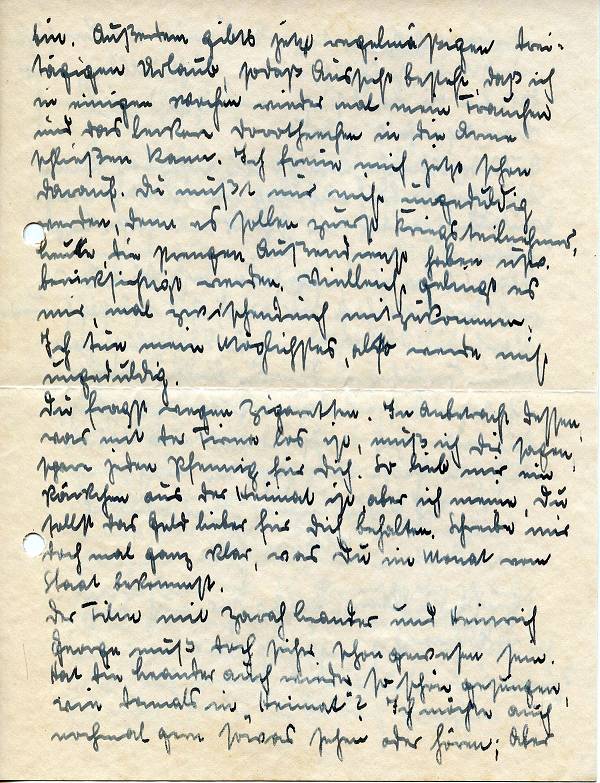 ein. Außerdem gibts jetzt regelmäßigen drei-
tägigen Urlaub, sodaß Aussicht besteht, daß ich
in einigen Wochen wieder mal mein Frauchen
und das leckere Dorotheechen in die Arme
schließen kann. Ich freue mich jetzt schon
darauf. Du mußt nur nicht ungeduldig
werden, denn es sollen zuerst Kriegsteilnehmer,
Leute, die strengen Außendienst haben usw.
berücksichtigt werden. Vielleicht gelingt es
mir, mal zwischendurch mitzukommen.
Ich tue mein Möglichstes, also werde nicht
ungeduldig.
Du fragst wegen Zigaretten. In Anbetracht dessen,
was mit de Firma los ist, muß ich Dir sagen,
spare jeden Pfennig für Dich. So lieb mir ein
Päckchen aus der Heimat ist, aber ich meine, Du
sollst das Geld lieber für Dich behalten. Schreibe mir
doch mal ganz klar, was Du im Monat vom
Staat bekommst.
Der Film mit Zarah Leander und Heinrich
George muß doch sicher schon gewesen sein.
Hat die Leander auch wieder so schön gesungen,
wie damals in „Heimat"? Ich möchte auch
nochmal gern sowas sehen oder hören; aber